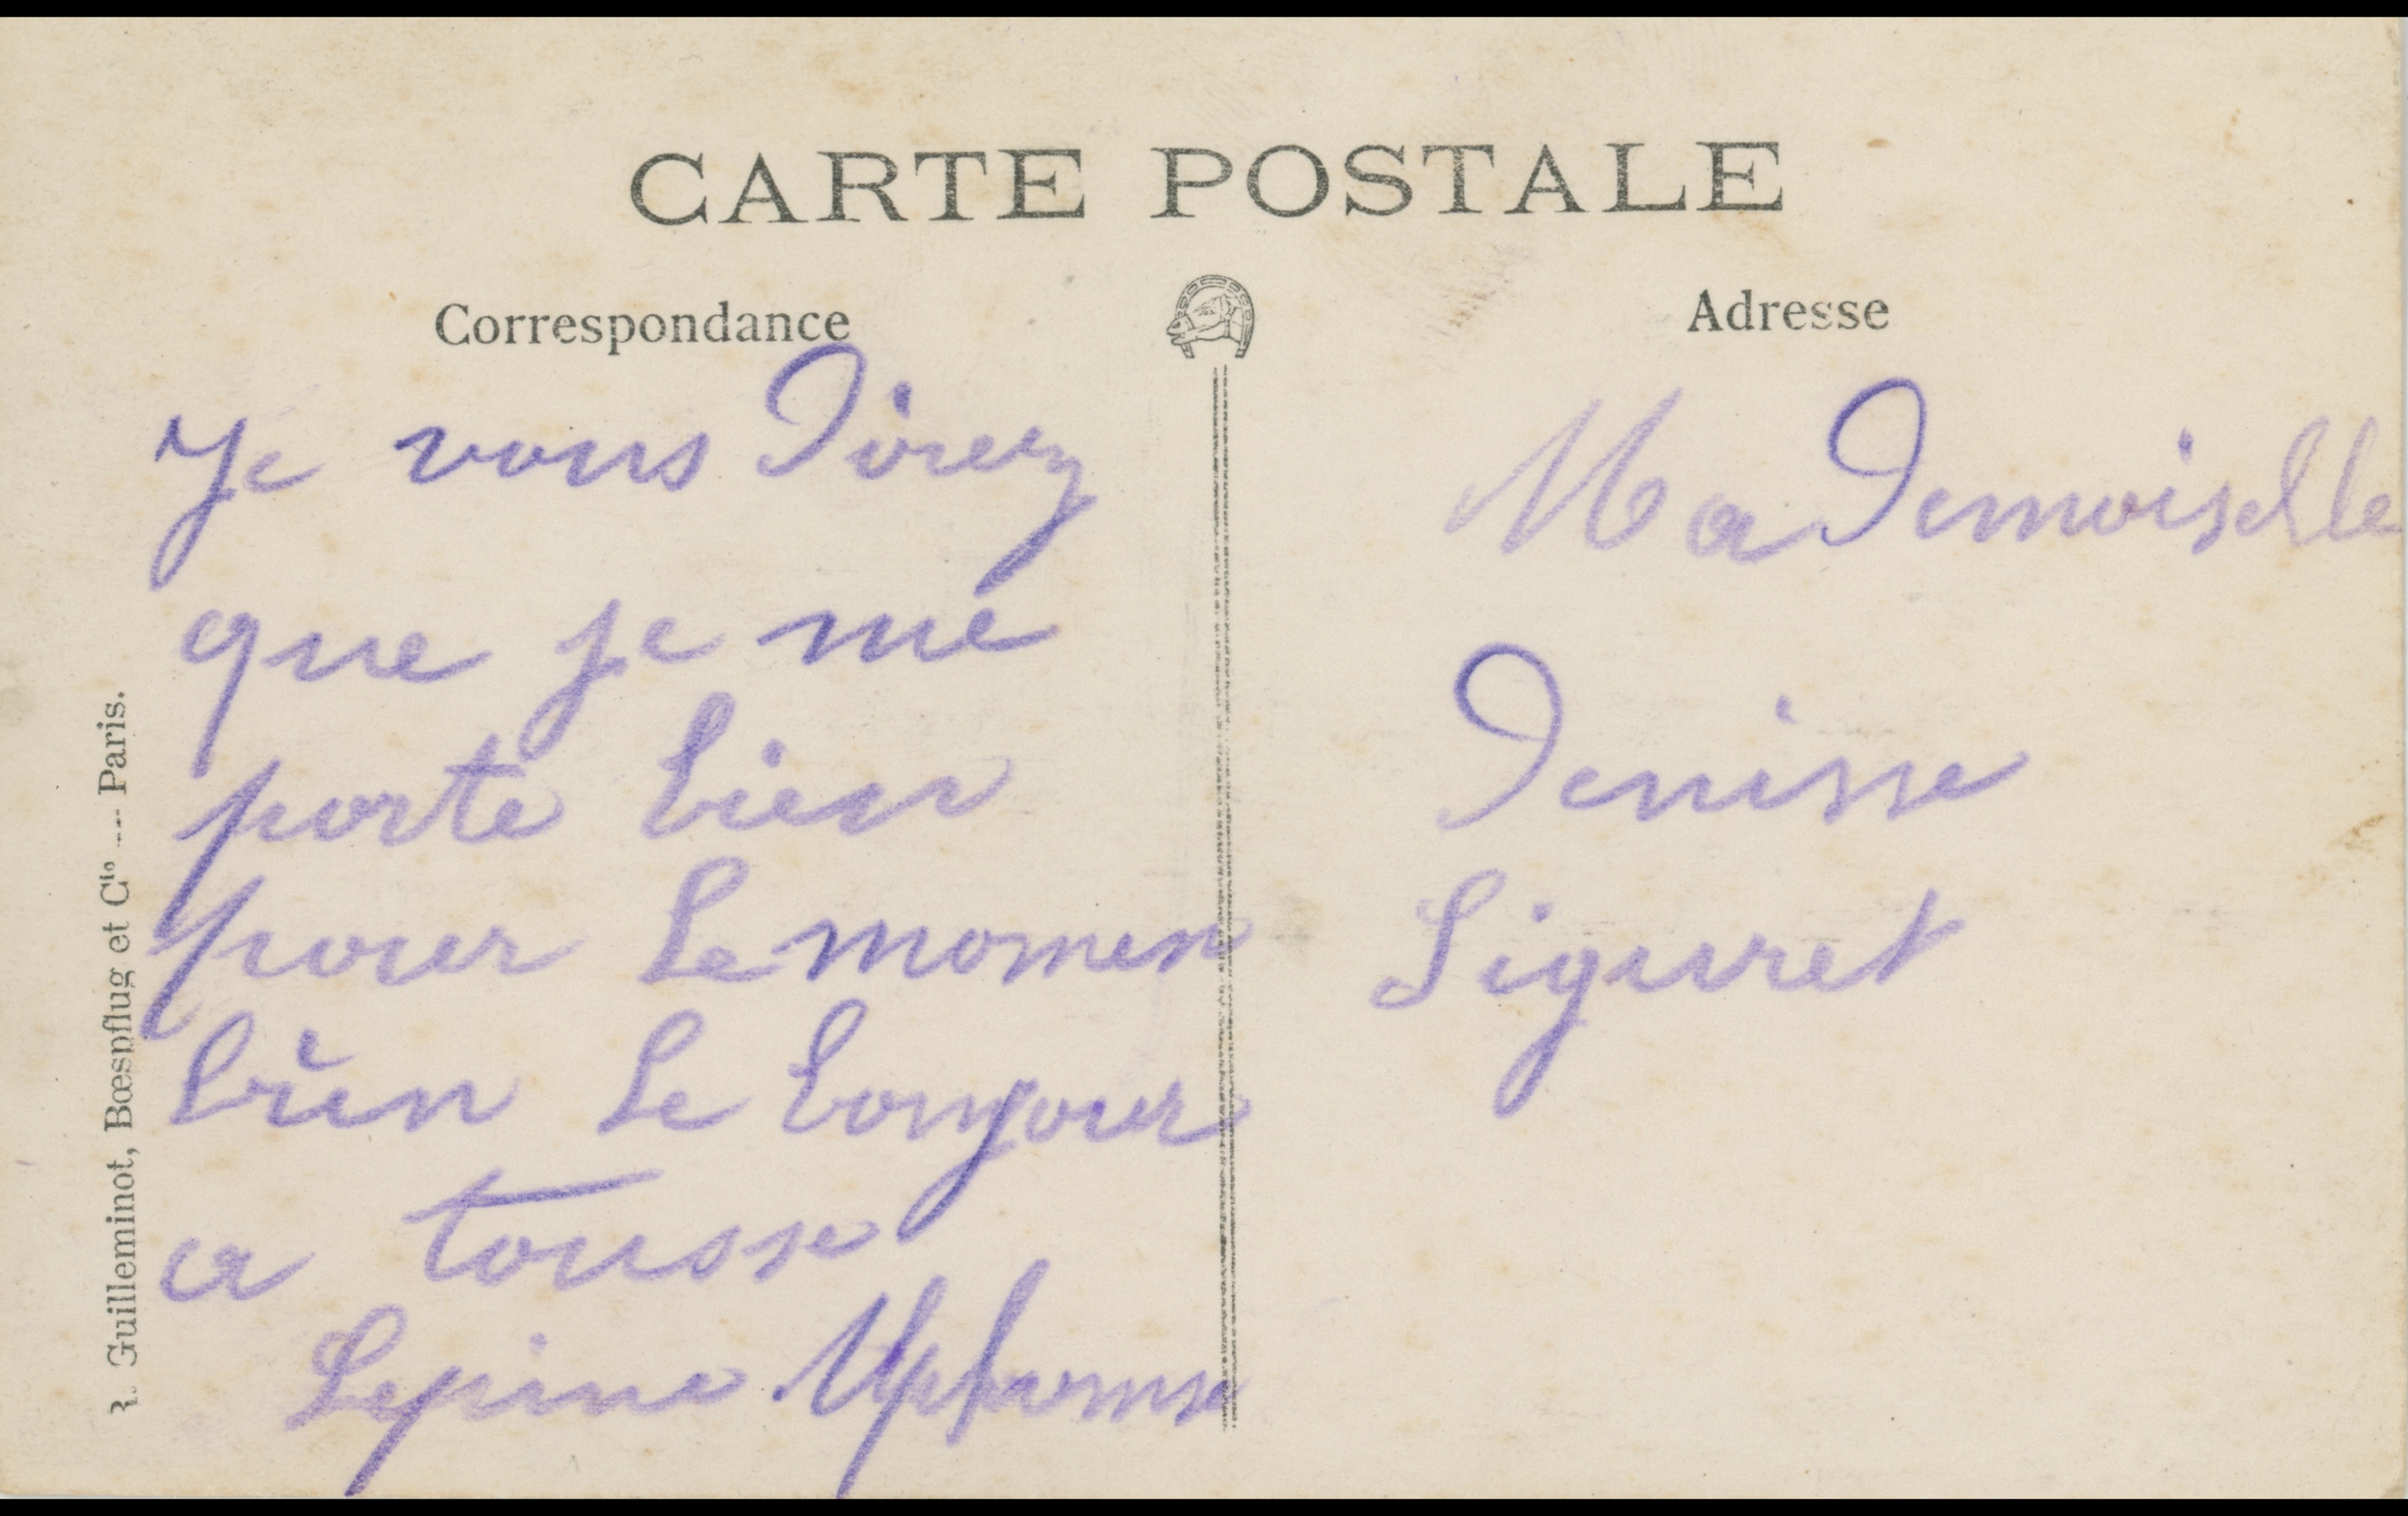 CARTE POSTALE
Correspondance
Je vous Direz
que je me
porte bien
pour Le momen
bien Le bonjour
a tousse
Lepine Alphonse
Adresse
MaDemoiselle
Denisse
Siguret
R. Guilleminot, Bœspflug et Cie --- Paris.